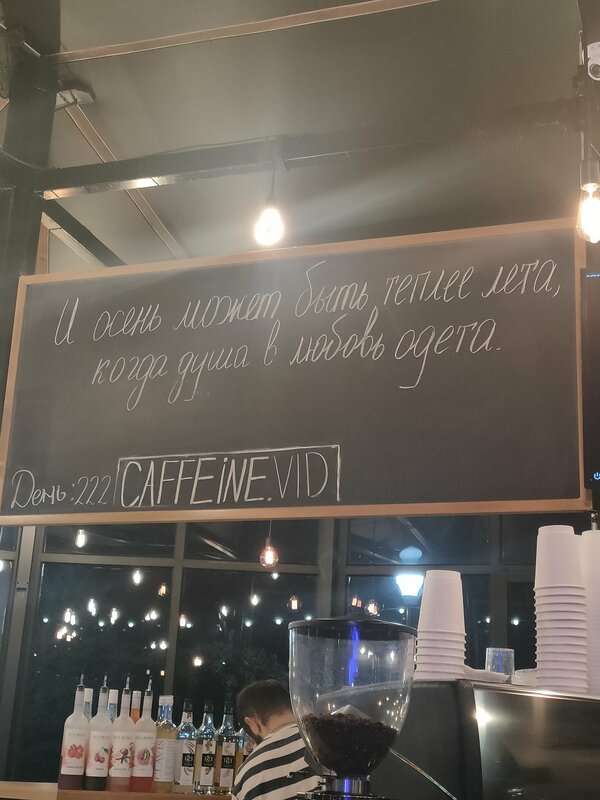 И осень может быть теплее лета,
когда душа в любовь одета.
День: 222 CAFFEiNE.VID